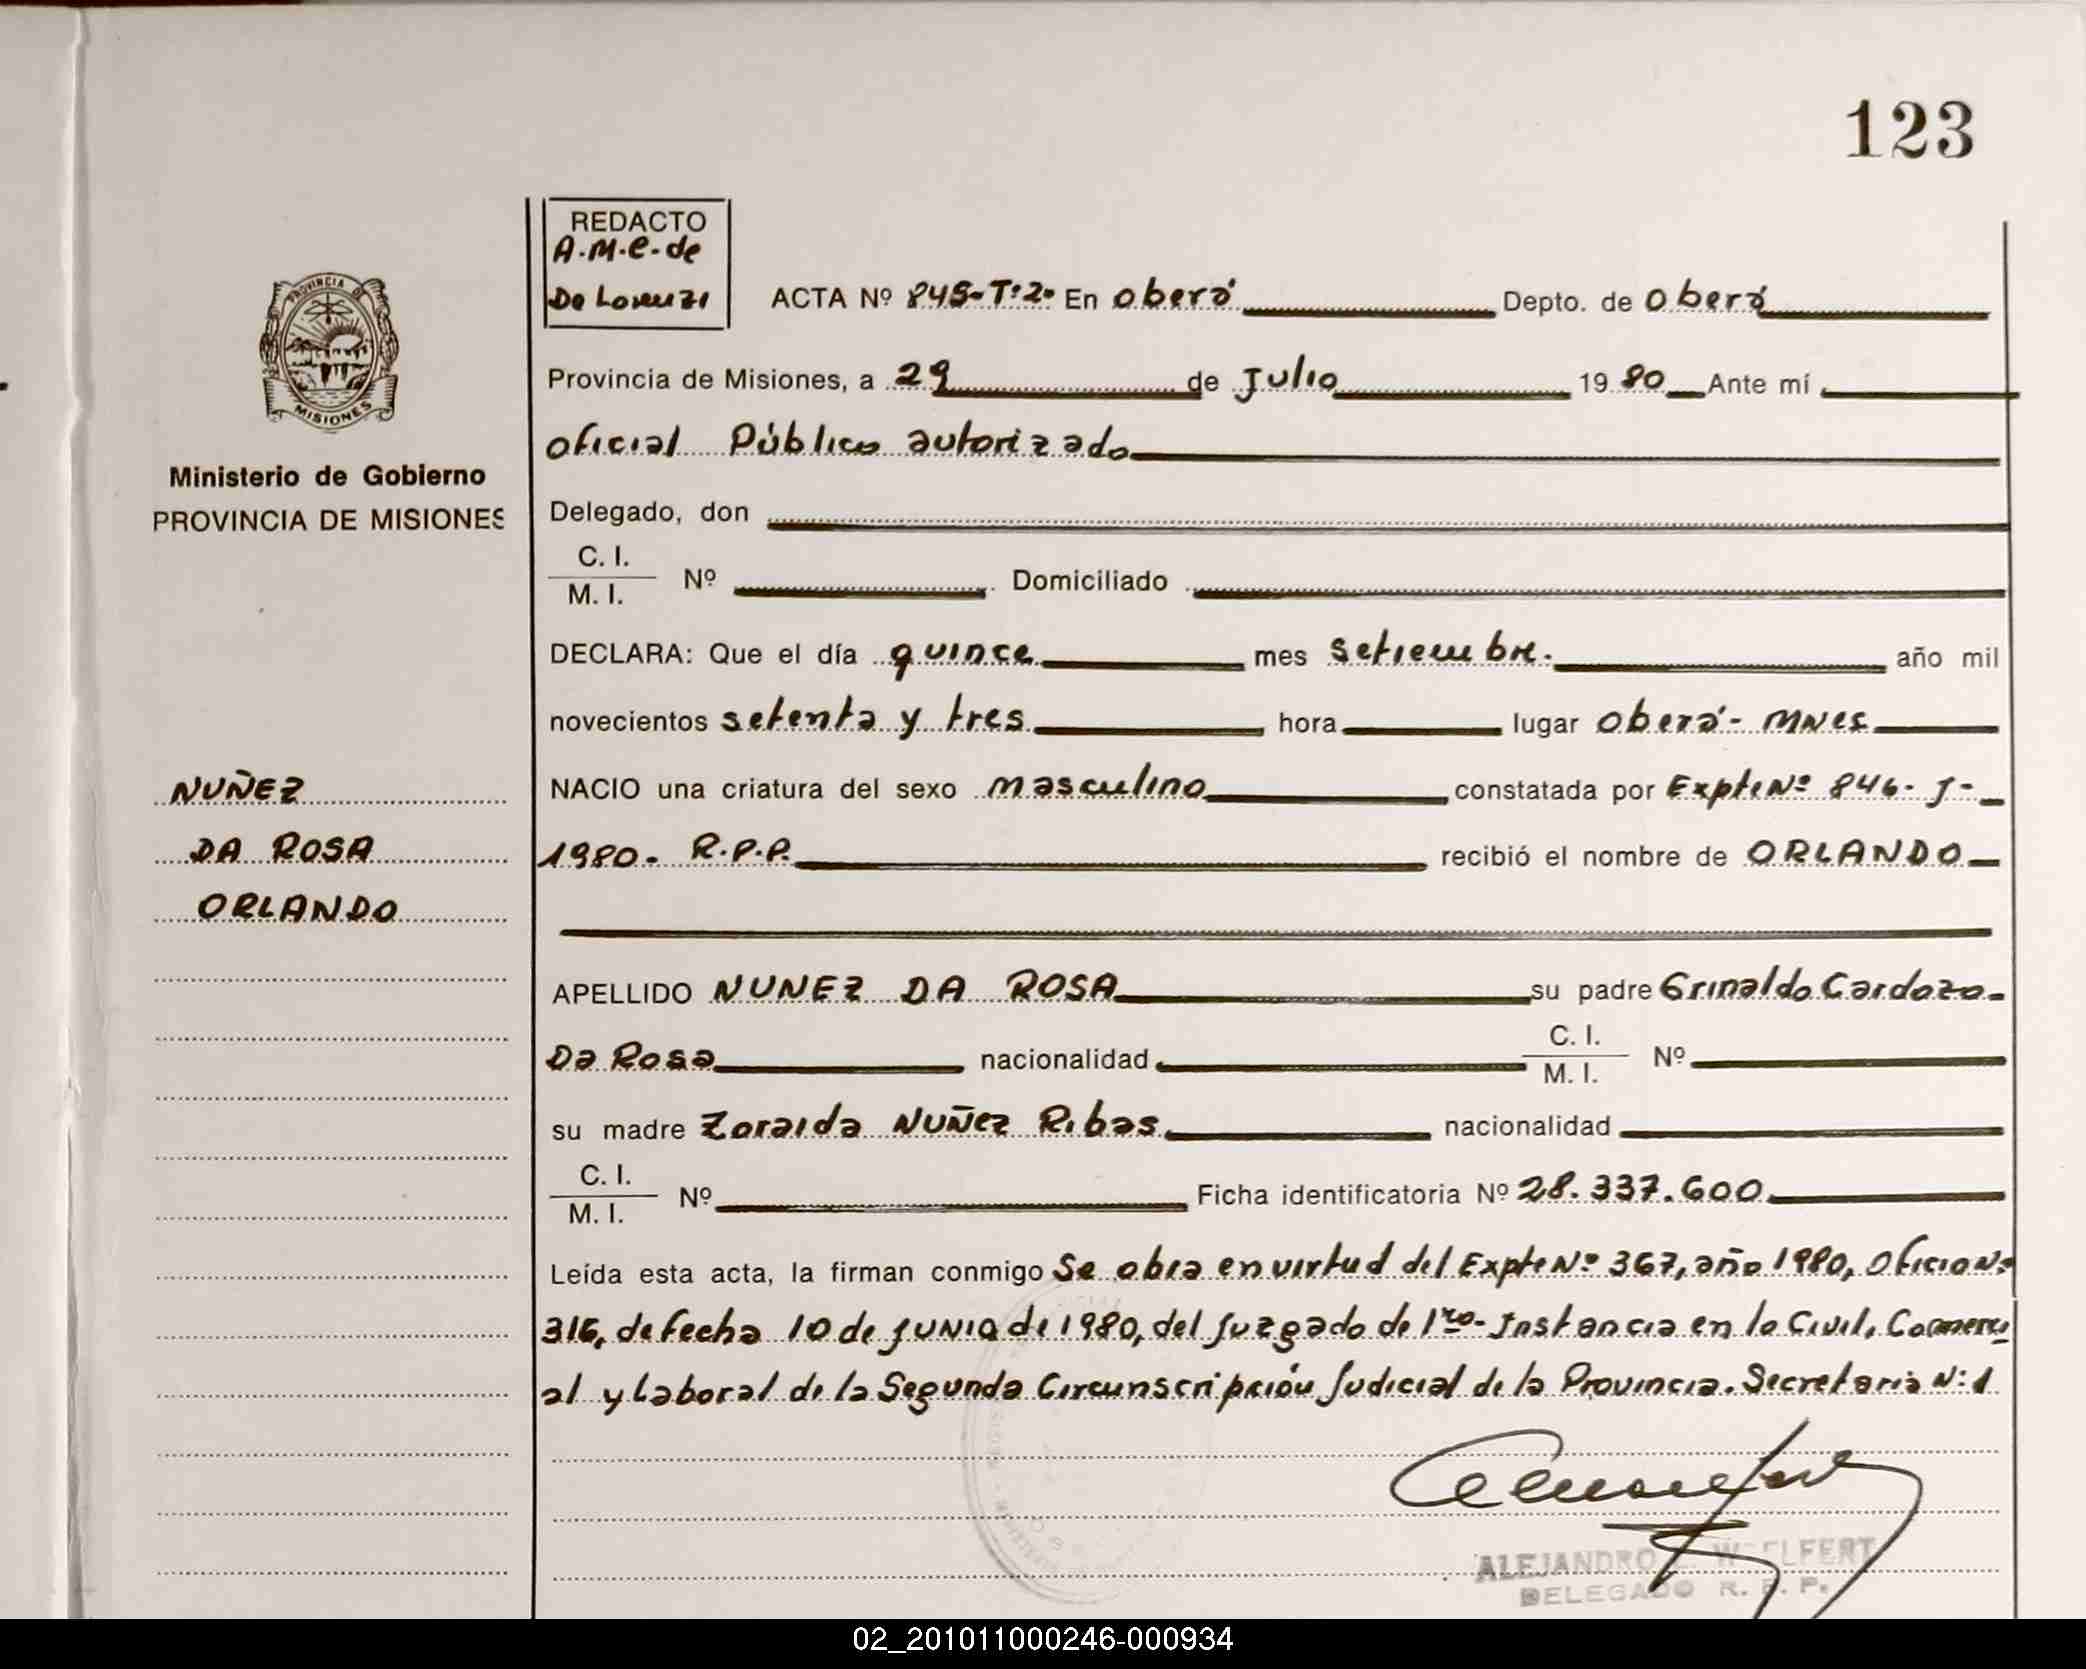 123
REDACTO
A.M.e.de
De Lorenzi
ACTA Nº 845-Tº2º En Oberá Depto. de Oberá
PROVINCIA DE
MISIONES
Provincia de Misiones, a 29 de Julio 1980 Ante mí
Oficial Público autorizado
Ministerio de Gobierno
PROVINCIA DE MISIONES
Delegado, don
C. I.
M. I. Nº Domiciliado
DECLARA: Que el día quince mes setiembre. año mil
novecientos setenta y tres hora lugar Oberá- MNES
NUÑEZ
DA ROSA
ORLANDO
NACIO una criatura del sexo masculino constatada por Expte Nº 846- J-
1980. R.P.P. recibió el nombre de ORLANDO
APELLIDO NUNEZ DA ROSA su padre Grinaldo Cardozo
Da Rosa nacionalidad C. I. M. I. Nº
su madre Zoraida Nuñez Ribas nacionalidad
C. I.
M. I. Nº Ficha identificatoria Nº 28.337.600
Leída esta acta, la firman conmigo Se obra en virtud del Expte Nº 367, año 1980, Oficio Nº
316, de fecha 10 de Junio de 1980, del Juzgado de 1ro- Instancia en lo Civil, Comerci
al y Laboral de la Segunda Circunscripción Judicial de la Provincia. Secretaria Nº 1
ALEJANDRO
DELEGADO R. P. P.
02_201011000246-000934